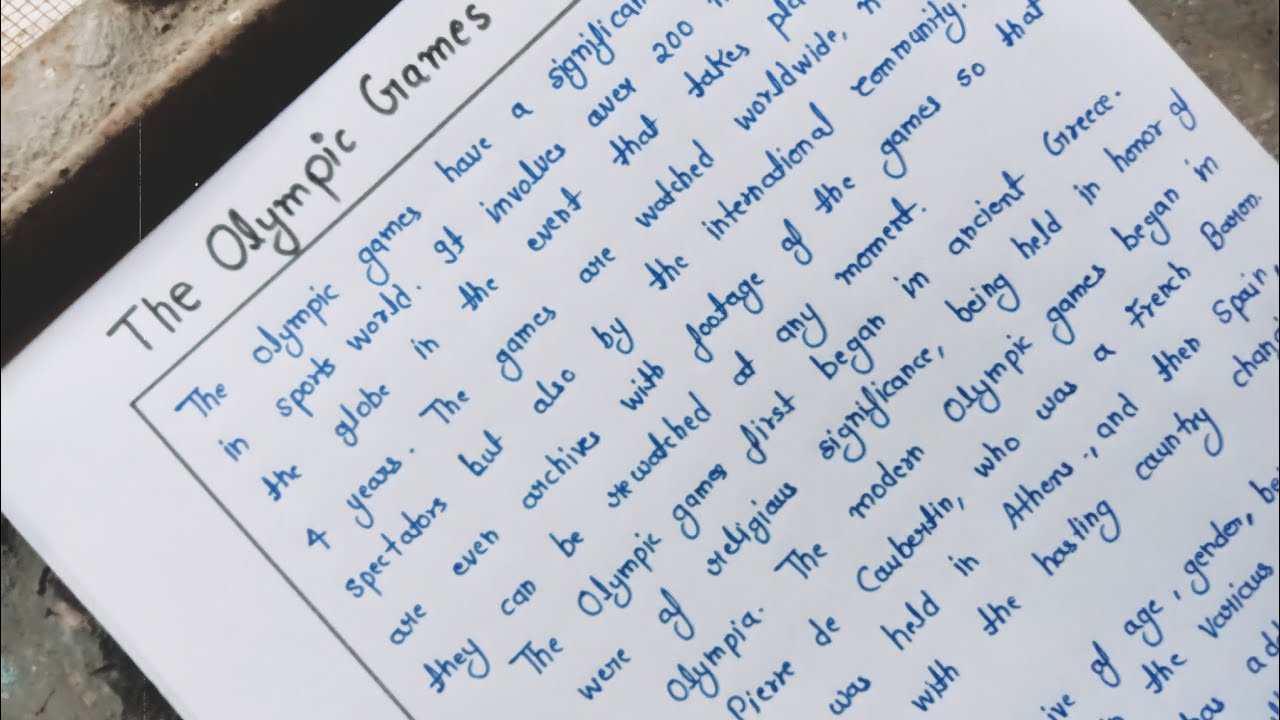 The Olympic Games
The Olympic games have a
in sports world. It involves over 200
the globe in the event that takes
4 years. The games are watched worldwide,
spectators but also by the international community.
are even archives with footage of the games so that
they can be rewatched at any moment.
The Olympic games first began in ancient Greece.
were of religious significance, being held in honor of
Olympia. The modern Olympic games began in
Pierre de Coubertin, who was a French Baron.
was held in Athens, and then Spain,
with the hosting country
of age, gender,
in the various